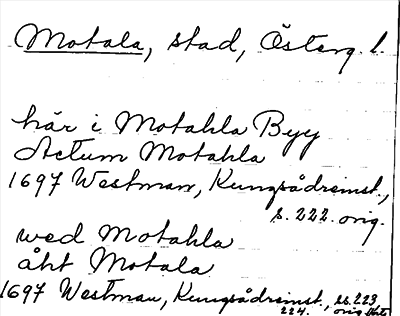 Motala, stad, Österg. l.
här i Motahla Byy
Actum Motahla
1697 Westman, Kungsådreinst.,
s. 222. orig.
wed Motahla
åht Motala
1697 Westman, Kungsådreinst., ss. 223
224. orig